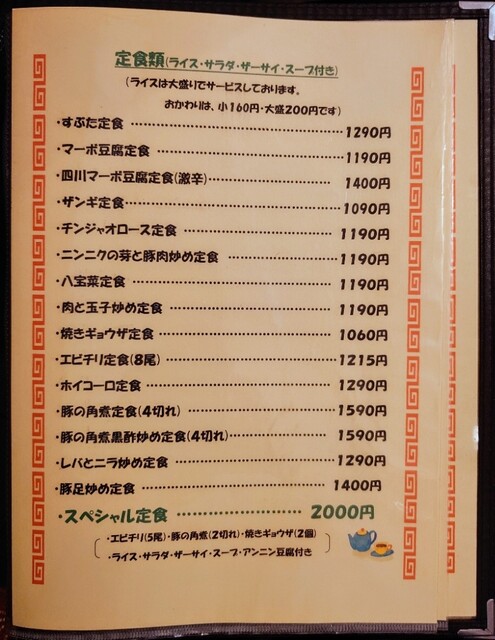 定食類(ライス・サラダ・ザーサイ・スープ付き)
(ライスは大盛りでサービスしております。
おかわりは、小160円・大盛200円です)
・すぶた定食 1290円
・マーボ豆腐定食 1190円
・四川マーボ豆腐定食(激辛) 1400円
・ザンギ定食 1090円
・チンジャオロース定食 1190円
・ニンニクの芽と豚肉炒め定食 1190円
・八宝菜定食 1190円
・肉と玉子炒め定食 1190円
・焼きギョウザ定食 1060円
・エビチリ定食(8尾) 1215円
・ホイコーロ定食 1290円
・豚の角煮定食(4切れ) 1590円
・豚の角煮黒酢炒め定食(4切れ) 1590円
・レバとニラ炒め定食 1290円
・豚足炒め定食 1400円
・スペシャル定食 2000円
・エビチリ(5尾)・豚の角煮(2切れ)・焼きギョウザ(2個)
・ライス・サラダ・ザーサイ・スープ・アンニン豆腐付き